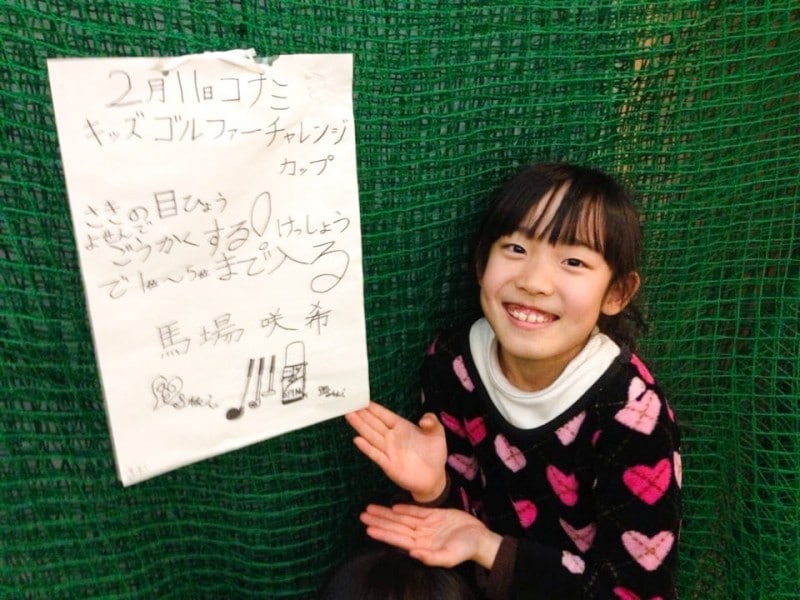 2月11日コナミ
キッズゴルファーチャレンジ
カップ
さきの目ひょう
よせんで
ごうかくする!けっしょう
で1位〜5位まで入る
馬場咲希